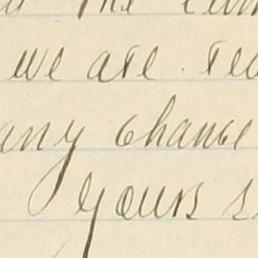 the
we are
any change
yours s